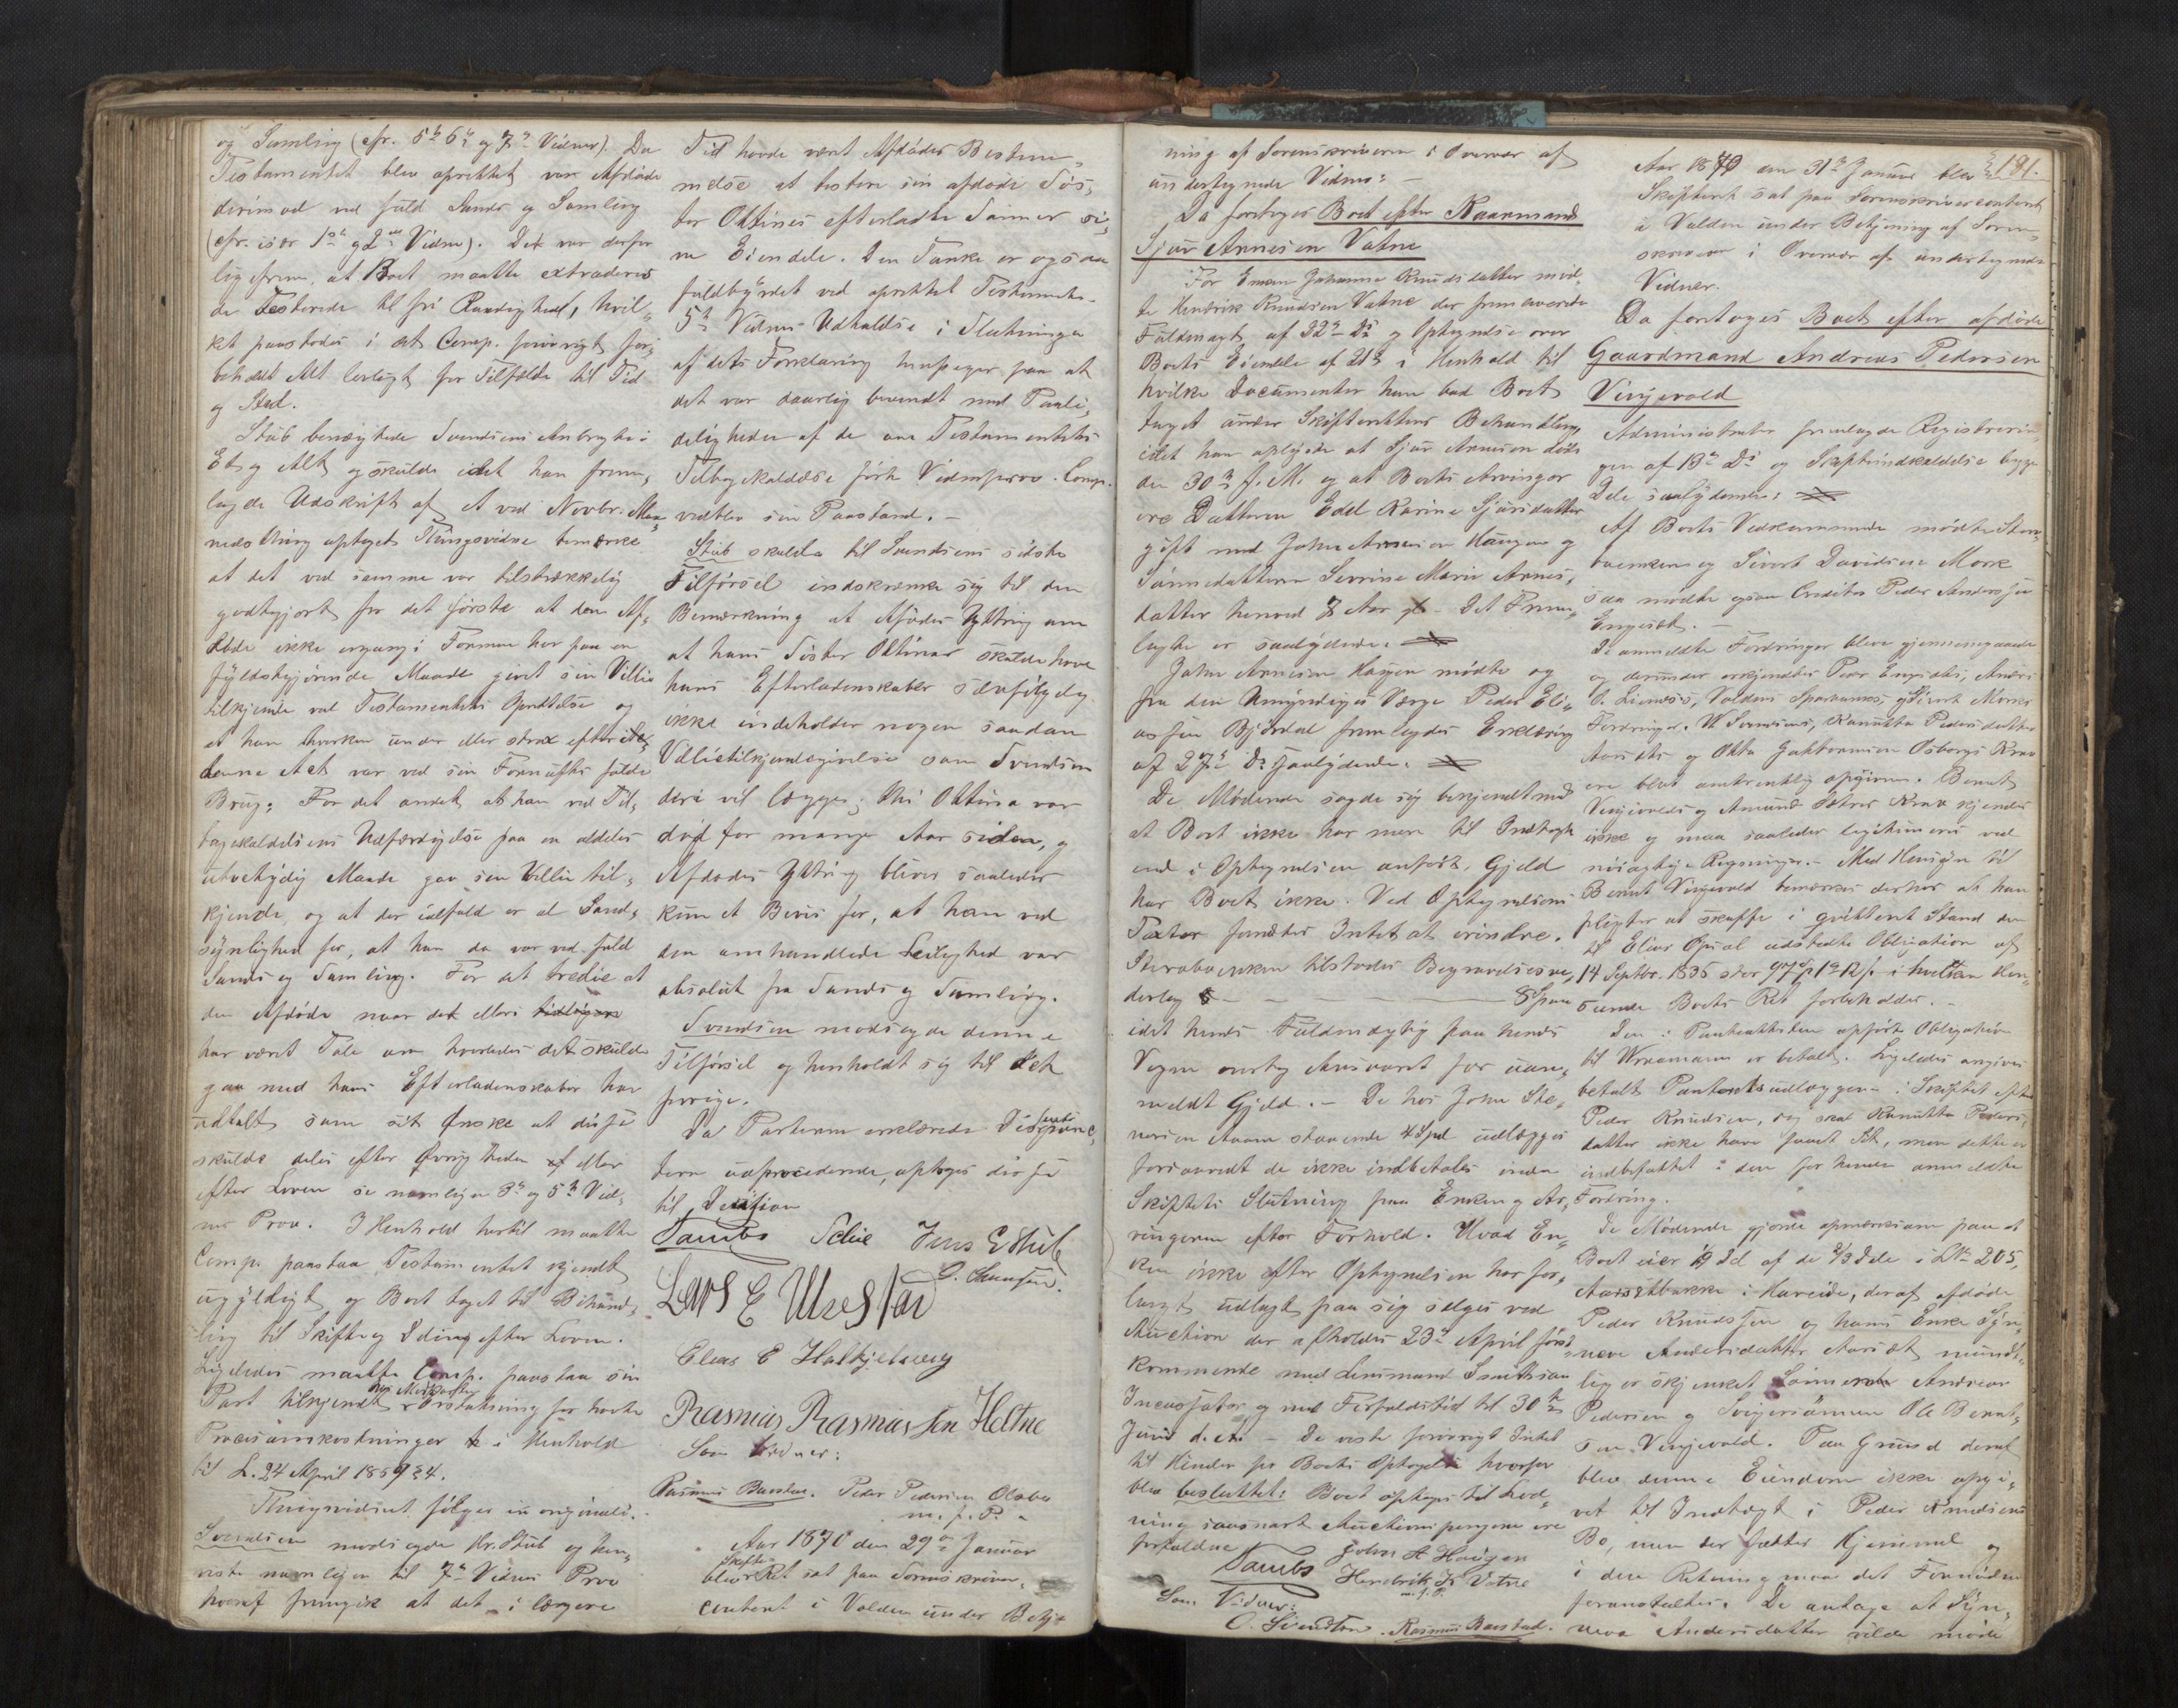 og Samling (cfr. 5te 6te og 7de Vidner). Da
Testamentet blev oprettet var Afdøde
derimod ved fuld Sands og Samling
(cfr. især 1ste og 2det Vidne). Det var derfor
ligefrem, at Boet maatte extraderes
de Testerede til fri Raadighed, hvil-
ket paastodes i det Comp. forøvrigt for-
beholdt Alt lovligt for Tilfælde til Tid
og Sted.
Stub benægtede Svendsens Anbragte i
Et og Alt og skulde idet han frem-
lagde Udskrift af et ved Novbr. Maa-
nedsthing optaget Thingsvidne bemærke
at det ved samme var tilstrækkelig
godtgjort for det første at den Af-
døde ikke engang i Formen har paa en
fyldestgjørende Maade givet sin Villie
tilkjende ved Testamentets Oprettelse og
at han hverken under eller strax efter
denne Act var ved sin Fornufts fulde
Brug; For det andet at han ved Til-
bagekaldelsens Udfærdigelse paa en aldeles
utvetydig Maade gav sin Villie til-
kjende, og at der ialfald er al Sand-
synlighed for, at han da var ved fuld
Sands og Samling. For det tredie at
den Afdøde naar det ellers
har været Tale om hvorledes det skulde
gaa med hans Efterladenskaber har
udtalt som sit Ønske at disse
skulde deles efter Øvrigheden eller
efter Loven se navnligen 3de og 5te Vid-
nes Prov. I Henhold hertil maatte
Comp. paastaa Testamentet kjendt
ugyldigt og Boet taget til Behand-
ling til Skifte og Deling efter Loven.
Ligeledes maatte Comp. paastaa sin
Part tilkjendt Erstatning for havte
Procesomkostninger i Henhold
til L. 24 April 1869 § 4.
Thingsvidnet følger in originali.
Svendsen modsagde Hr. Stub og hen-
viste navnligen til 7de Vidnes Prov
hvoraf fremgik at det i længere
Tid havde været Afdødes Bestem-
melse at testere sin afdøde Søs-
ter Oktines efterladte Sønner si-
ne Eiendele. Den Tanke er ogsaa
fuldbyrdet ved oprettet Testamente.
5te Vidnes Udtalelse i Slutningen
af dets Forklaring henpeger paa at
det var daarlig bevendt med Paali-
deligheden af de om Testamentets
Tilbagekaldelse førte Vidneprov. Comp.
vedblev sin Paastand.
Stub skulde til Svendsens sidste
Tilførsel indskrænke sig til den
Bemærkning at Afdødes Yttring om
at hans Søster Oktines skulde have
hans Efterladenskaber selvfølgelig
ikke indeholder nogen saadan
Villiestilkjendegivelse som Svendsen
deri vil lægge; thi Oktina var
død for mange Aar siden, og
Afdødes Yttring bliver saaledes
kun et Bevis for, at han ved
den omhandlede Leilighed var
absolut fra Sands og Samling.
Svendsen modsagde denne
Tilførsel og henholdt sig til det
forrige.
Da Parterne erklærede
uafprocederende, optoges disse
til Decision
Tambs Schie Jens E Stub
O. Svendsen.
Lars E Ulvestad
Elias E Halkjelsvig
Rasmus Rasmussen Heltne
Som Vidner:
Rasmus Baastad. Peder Pedersen
m. f. P.
Aar 1870 den 29de Januar
blev Skifte Ret sat paa Sorenskriver-
contoret i Volden under Betje-
ning af Sorenskriveren i Overvær af
undertegnede Vidner:
Da foretages Boet efter Kaarmand
Sjur Arnesen Vatne
For Enken Johanne Knudsdatter mød-
te Hendrik Knudsen Vatne der fremleverede
Fuldmagt af 22de Ds og Optegnelse over
Boets Eiendele af 21de i Henhold til
hvilke Documenter han bad Boet
taget under Skifterettens Behandling
idet han oplyste at Sjur Arnesen døde
den 30te f. M. og at Boets Arvinger
ere Datteren Edel Karine Sjursdatter
gift med John Arnesen Haugen og
Sønnedatteren Severine Marie Arnes-
datter henved 7 Aar gl. Det Frem-
lagte er saalydende:
John Arnesen Haugen mødte og
fra den Umyndiges Værge Peder Eli-
assen Bjørdal fremlagdes Erklæring
af 27de Ds saalydende:
De Mødende sagde sig bekjendt med
at Boet ikke har mere til Indtægt
end i Optegnelsen anført. Gjeld
har Boet ikke. Ved Optegnelsens
Taxter fandtes Intet at erindre.
Stervboenken tilstodes Begravelsesve-
derlag 8 Spd
idet hendes Fuldmægtig paa hendes
Vegne overtog Ansvaret for uan-
meldt Gjeld. De hos John Ste-
nersen Aaam staaende 4 Spd udlægges
forsaavidt de ikke indbetales inden
Skiftets Slutning paa Enken og Ar-
vingerne efter Forhold. Hvad En-
ken ikke efter Optegnelsen har for-
langt udlagt paa sig sælges ved
Auction der afholdes 23de April først-
kommende med Lensmand Smithsan
Incassator og med Forfaldstid til 30te
Juni d. A. De viste forøvrigt Intet
til Hinder for Boets Optagelse hvorfor
blev besluttet: Boet optages til Lod-
ning saasnart Auctionspengene ere
forfaldne
Tambs John A Haugen
Hendrik K Vatne
m. f. P.
Som Vidner:
O. Svendsen. Rasmus Baastad.
181.
Aar 1870 den 31te Januar blev
Skifteret sat paa Sorenskrivercontoret
i Volden under Betjening af Soren-
skriveren i Overvær af undertegnede
Vidner.
Da foretages Boet efter afdøde
Gaardmand Andreas Pedersen
Vinjevold
Administrator fremlagde Registrerin-
gen af 13de Ds og Skifteindkaldelse begge
Dele saalydende:
Af Boets Vedkommende mødte Sterv-
boenken og Sivert Davidsen Mork
saa mødte ogsaa Creditor Peder Anderssen
Engeset.
De anmeldte Fordringer bleve gjennemgaaede
og derunder erkjendtes Peder Engesets, Anders
O. Lienæs's, Voldens Sparebanks og Sivert Morks
Fordringer. W Svendsens, Kanutta Pedersdatter
Aarsets og Otto Jakkobsens Osborgs Krav
ere blot omtrentlig opgivne. Bernt
Vinjevolds og Amund Sætres Krav kjendes
ikke og maa saaledes legitimeres ved
nøiagtige Regninger. Med Hensyn til
Bernt Vinjevold bemærkes derhos at han
pligter at skaffe i qvitteret Stand den
til Elias Opsal udstedte Obligation af
14 Septbr. 1835 stor 97 Sp 1 12 s i hvilken Hen-
seende Boets Ret forbeholdes.
Den i Panteattesten opførte Obligation
til Wraamann er betalt. Ligeledes angives
betalt Panteudlæggene i Skiftet efter
Peder Knudsen, dog skal Kanutta Peders-
datter ikke have faaet Sit, men dette er
indbefattet i den for hende anmeldte
Fordring.
De Mødende gjorde opmærksom paa at
Boet eier Del af de 2/3 Dele i LNo 205,
Aarsetbakke i Hareide, deraf afdøde
Peder Knudssen og hans Enke Syn-
neve Andersdatter Aarset mundt-
lig er skjenket Sønnen Andreas
Pedersen og Svigersønnen Ole Bernt-
sen Vinjevold. Paa Grund deraf
blev denne Eiendom ikke opgi-
vet til Indtægt i Peder Knudsens
Bo, men der fattes Hjemmel og
i den Retning maa det Fornødne
foranstaltes. De antage at Syn-
neve Andersdatter vilde møde